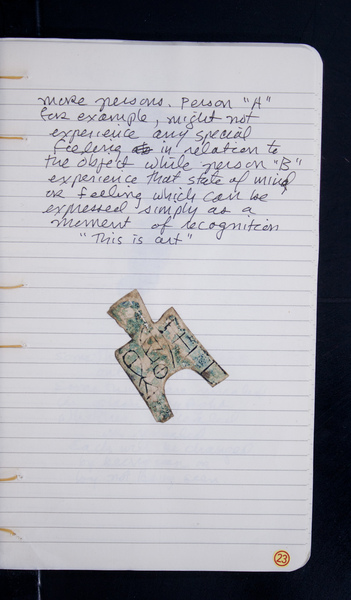 more persons. Person "A"
for example, might not
experience any special
feeling in relation to
the object while person "B"
experience that state of mind
or feeling which can be
expressed simply as a
moment of recognition
"This is art"
23